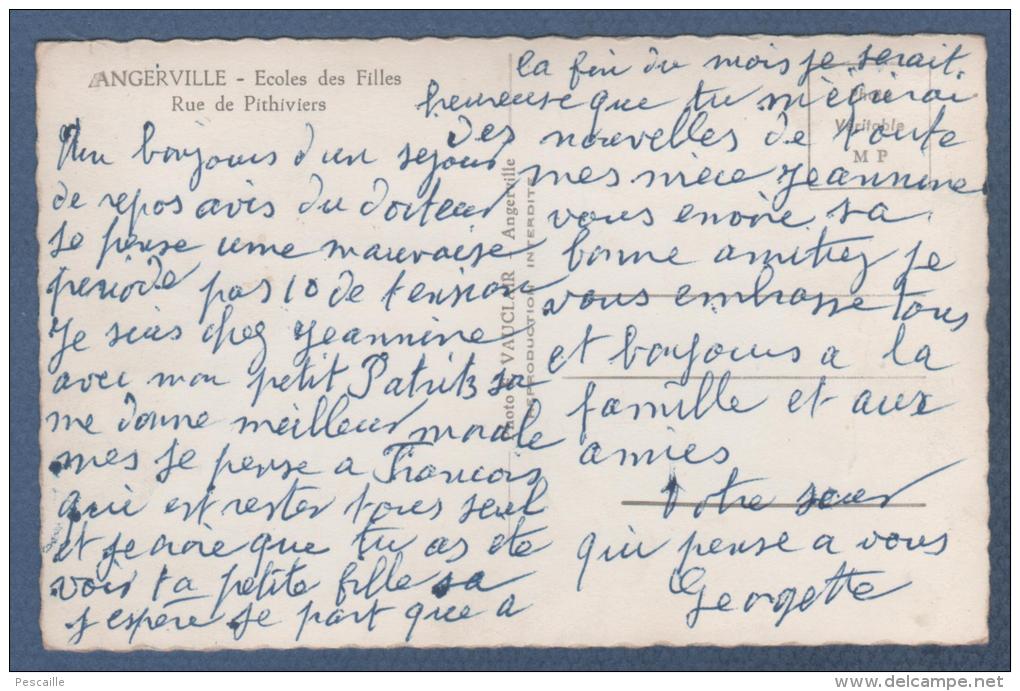 ANGERVILLE - Ecoles des Filles
Rue de Pithiviers
Un bonjours d'un sejour
de repos avis du docteur
je pense ume mauvaise
periode pas 10 de tension
Je suis chez Jeannine
avec mon petit Patrik sa
me donne meilleur morale
mes je pense a Francois
qui est rester tous seul
et je croie que tu as ete
voir ta petite fille sa
j'espère je part que a
la fin du mois je serait
heureuse que tu m'
des nouvelles de toute
mes niece Jeannine
vous envoie sa
bonne amitiez je
vous embrasse tous
et bonjours a la
famille et aux
amies
Votre seur
qui pense a vous
Georgette
Photo
Véritable
M P
Photo VAUCLAIR Angerville
REPRODUCTION INTERDITE
Pescaille
delcampe.net